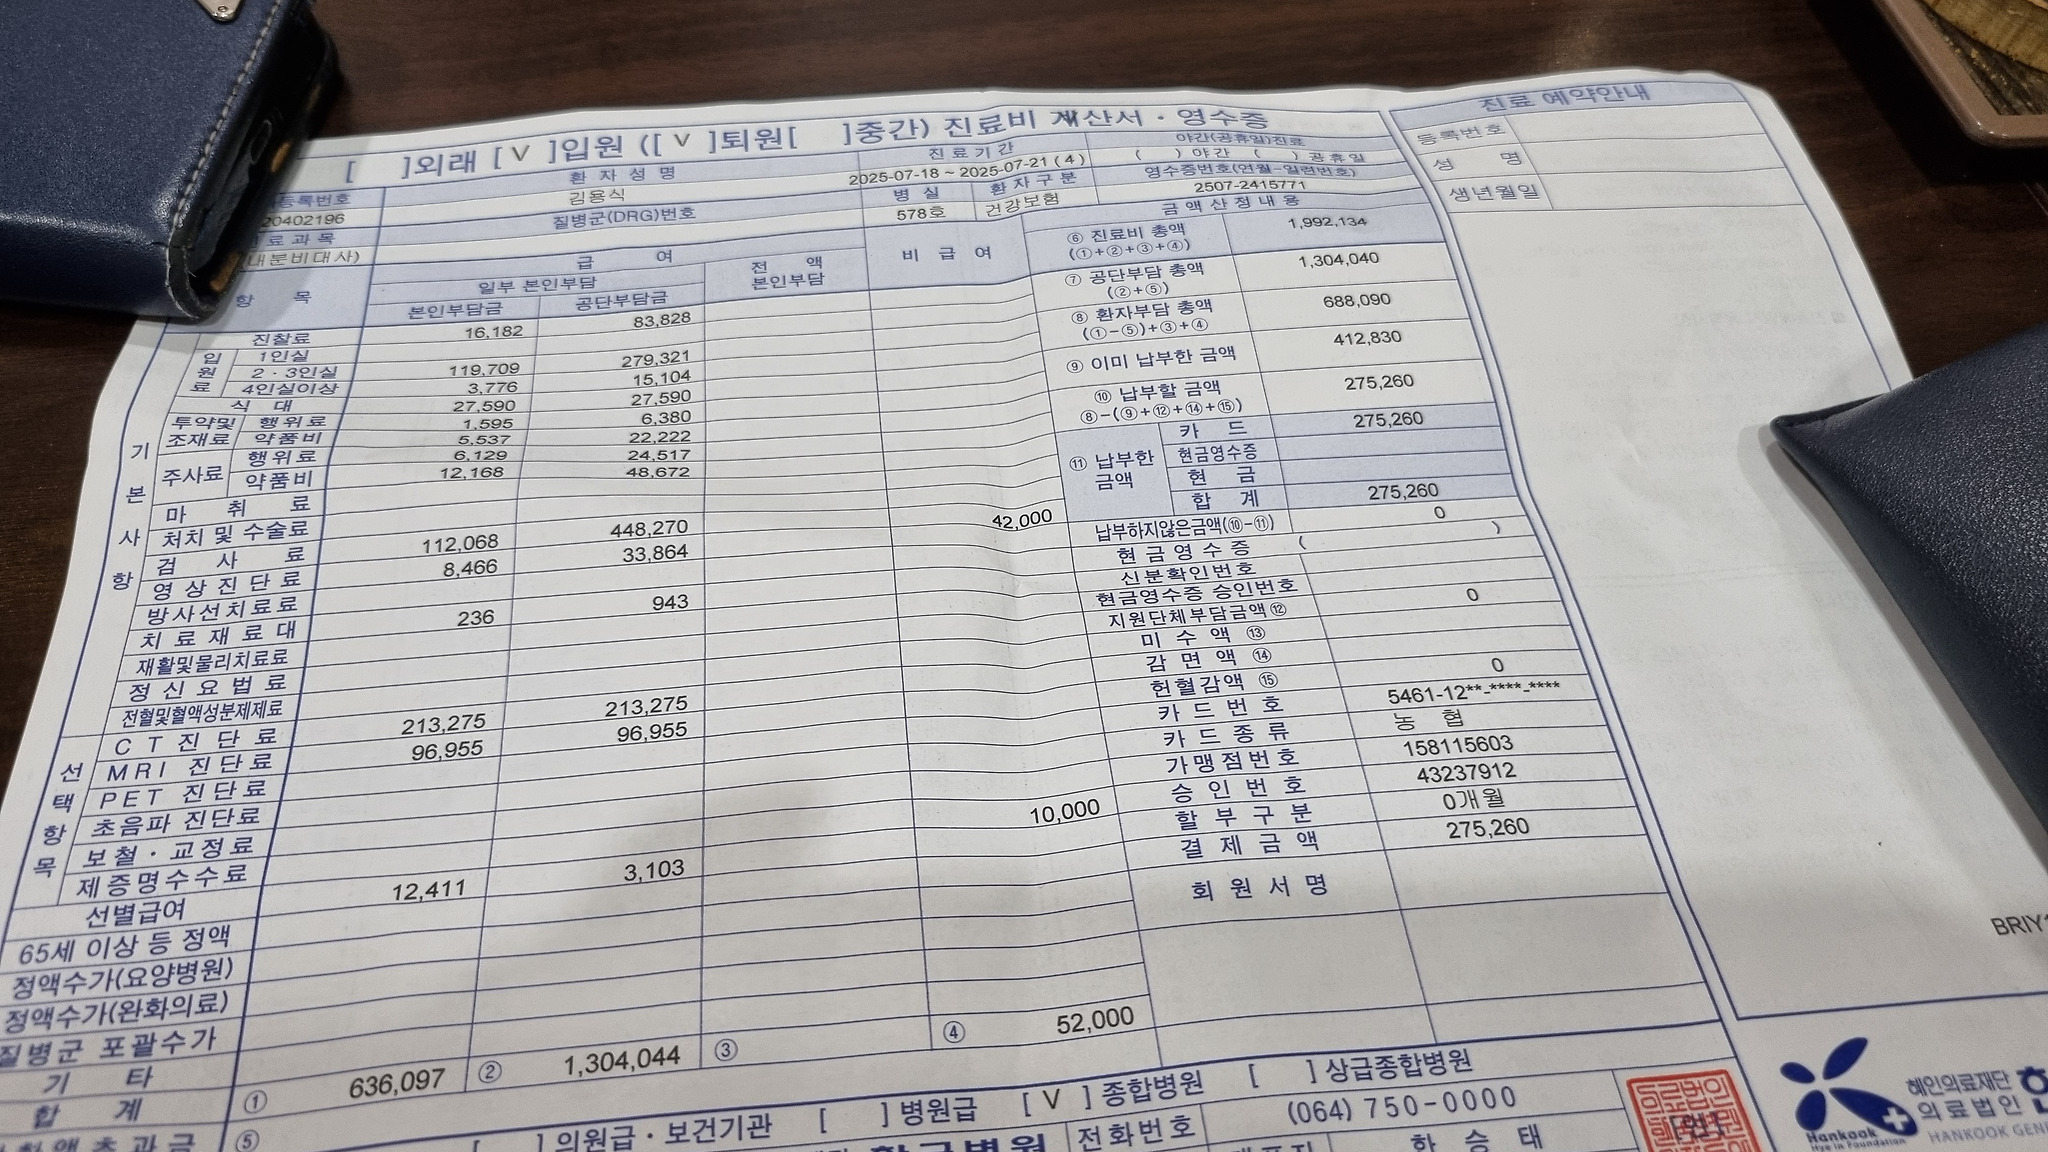 [ ]외래 [ V ]입원 ([ V ]퇴원[ ]중간) 진료비 계산서 · 영수증
등록번호
환자성명
진료기간
야간(공휴일)진료
20402196
김용식
2025-07-18 ~ 2025-07-21 ( 4 )
( ) 야간 ( ) 공휴일
료과목
질병군(DRG)번호
병실
환자구분
영수증번호(연월-일련번호)
내분비대사)
578호
건강보험
2507-2415771
항 목
급 여
비 급 여
금액산정내용
일부 본인부담
전 액
본인부담
본인부담금
공단부담금
기본사항
진찰료 16,182 83,828
입원료
1인실
2 · 3인실 119,709 279,321
4인실이상 3,776 15,104
식 대 27,590 27,590
투약및 조제료
행위료 1,595 6,380
약품비 5,537 22,222
주사료
행위료 6,129 24,517
약품비 12,168 48,672
마 취 료
처치 및 수술료
검 사 료 112,068 448,270 42,000
영상진단료 8,466 33,864
방사선치료료
치료재료대 236 943
재활및물리치료료
정신요법료
전혈및혈액성분제제료
선택항목
CT진단료 213,275 213,275
MRI 진단료 96,955 96,955
PET 진단료
초음파 진단료
보철 · 교정료
제증명수수료 10,000
선별급여 12,411 3,103
65세 이상 등 정액
정액수가(요양병원)
정액수가(완화의료)
질병군 포괄수가
기 타
합 계 ① 636,097 ② 1,304,044 ③ ④ 52,000
⑤
⑥ 진료비 총액
(①+②+③+④)
1,992,134
⑦ 공단부담 총액
(②+⑤)
1,304,040
⑧ 환자부담 총액
(①-⑤)+③+④
688,090
⑨ 이미 납부한 금액
412,830
⑩ 납부할 금액
⑧-(⑨+⑫+⑭+⑮)
275,260
⑪ 납부한 금액
카 드 275,260
현금영수증
현 금
합 계 275,260
납부하지않은금액(⑩-⑪) 0
현금영수증 ( )
신분확인번호
현금영수증 승인번호
지원단체부담금액⑫ 0
미 수 액 ⑬
감 면 액 ⑭
헌혈감액 ⑮ 0
카드번호 5461-12**-****-****
카드종류 농 협
가맹점번호 158115603
승인번호 43237912
할부구분 0개월
결제금액 275,260
회원서명
[ ]의원급 · 보건기관 [ ]병원급 [ V ]종합병원 [ ]상급종합병원
전화번호
(064) 750-0000
한 승 태
[인]
진료 예약안내
등록번호
성 명
생년월일
BRIY
Hankook
Hye in Foundation
혜인의료재단
의료법인 한
HANKOOK GENE